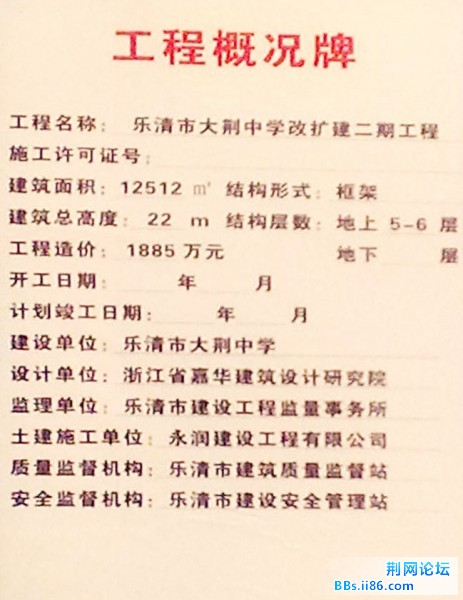 工程概况牌
工程名称： 乐清市大荆中学改扩建二期工程
施工许可证号：
建筑面积：12512 ㎡ 结构形式：框架
建筑总高度：22 m 结构层数：地上 5-6 层
工程造价：1885 万元 地下 层
开工日期： 年 月
计划竣工日期： 年 月
建设单位：乐清市大荆中学
设计单位：浙江省嘉华建筑设计研究院
监理单位：乐清市建设工程监量事务所
土建施工单位：永润建设工程有限公司
质量监督机构：乐清市建筑质量监督站
安全监督机构：乐清市建设安全管理站
荆网论坛
BBs.ii86.com